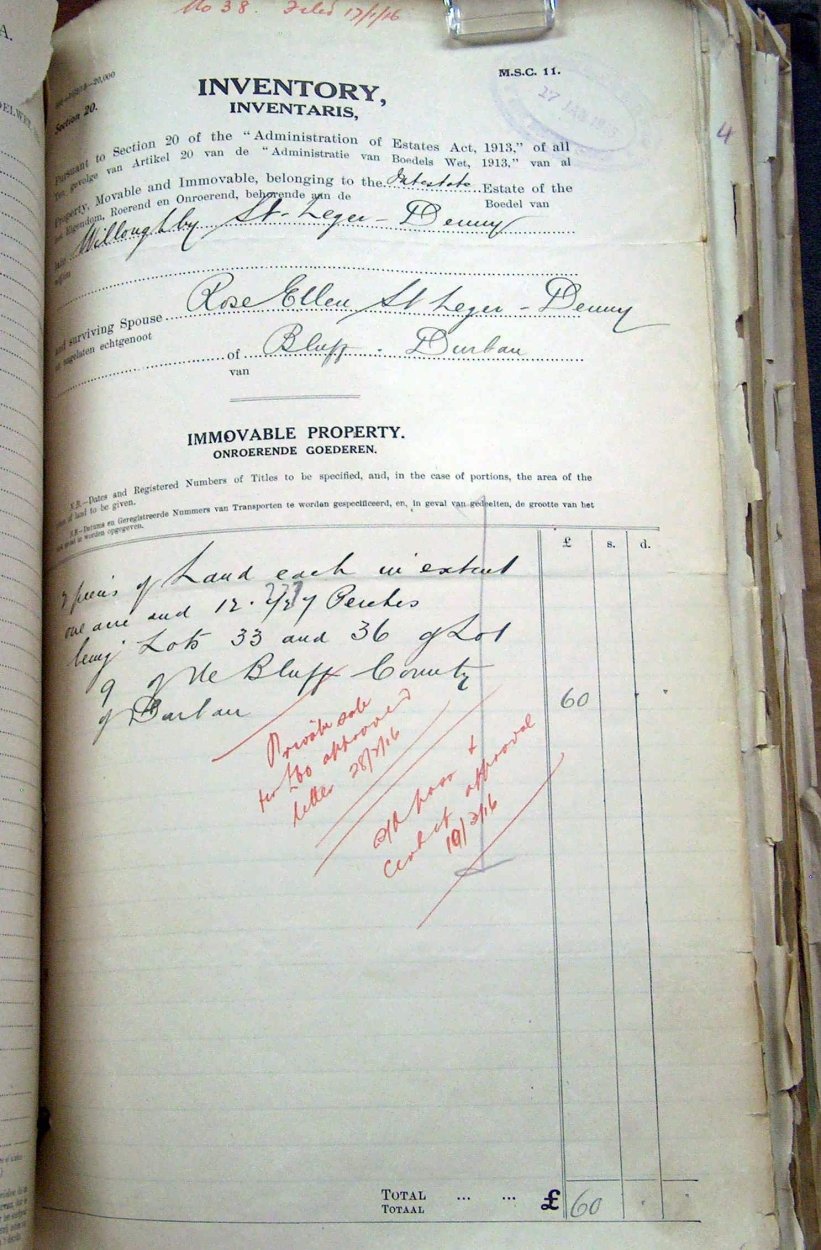 No 38. Filed 17/1/16
M.S.C. 11.
INVENTORY,
INVENTARIS,
Section 20.
17 JAN 19
4
Pursuant to Section 20 of the "Administration of Estates Act, 1913," of all
gevolge van Artikel 20 van de "Administratie van Boedels Wet, 1913," van al
Property, Movable and Immovable, belonging to the Intestate Estate of the
Eigendom, Roerend en Onroerend, behorende aan de Boedel van
late Willoughby St. Leger-Denny
surviving Spouse Rose Ellen St Leger-Denny
nagelaten echtgenoot
of Bluff. Durban
van
IMMOVABLE PROPERTY.
ONROERENDE GOEDEREN.
N.B.—Dates and Registered Numbers of Titles to be specified, and, in the case of portions, the area of the
of land to be given.
N.B.—Datums en Geregistreerde Nummers van Transporten te worden gespecificeerd, en, in geval van gedeelten, de grootte van het
te worden opgegeven.
£ s. d.
of Land each in extent
one acre and 12. Perches
being Lots 33 and 36 of Lot
9 of the Bluff County
of Durban 60
Private sale
for £60 approved
letter 28/2/16
approval
19/2/16
TOTAL ... ... £ 60
TOTAAL